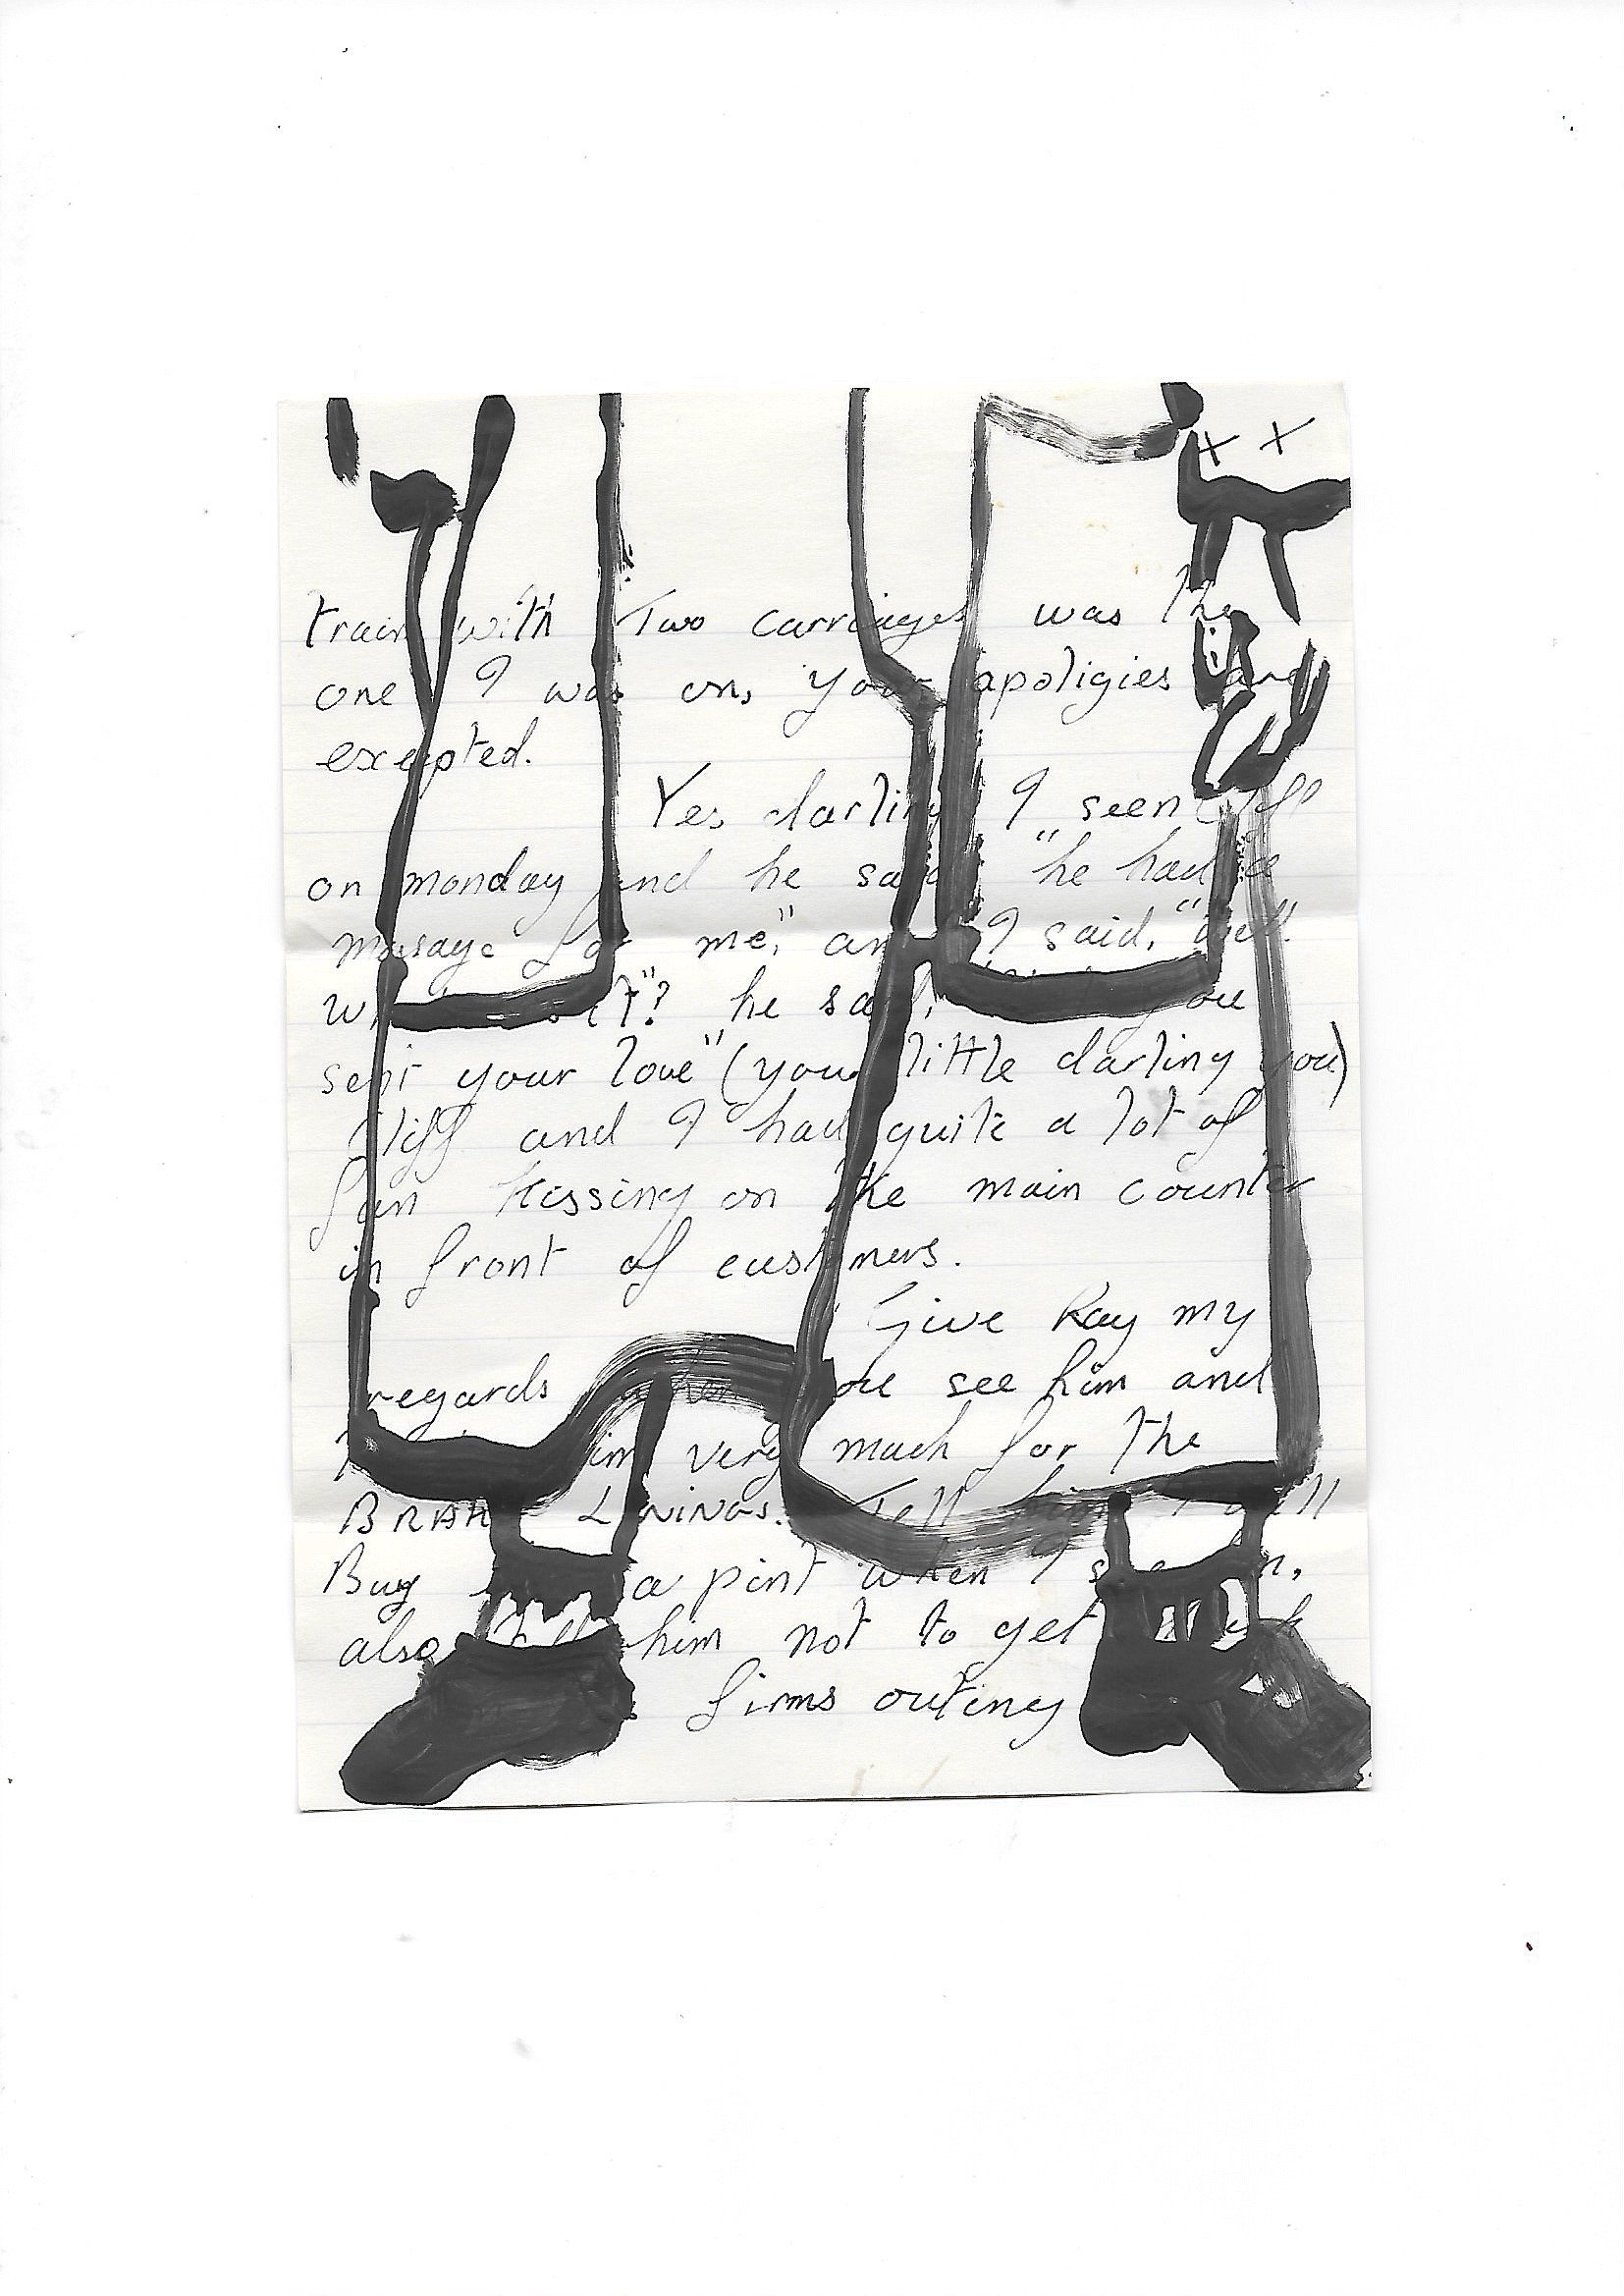 x x
train with Two carriages was the
one I was on, your apoligies are
excepted.
Yes darling I seen Cliff
on monday and he said "he had a
masage for me," and I said, "well
what is it"? he said, you
sent your love" (you little darling you)
Cliff and I had quite a lot of
fun kissing on the main counter
in front of customers.
Give Ray my
regards when you see him and
him very much for the
BRAKE LININGS. Tell him I will
Buy a pint when I see him,
also tell him not to get
firms outing